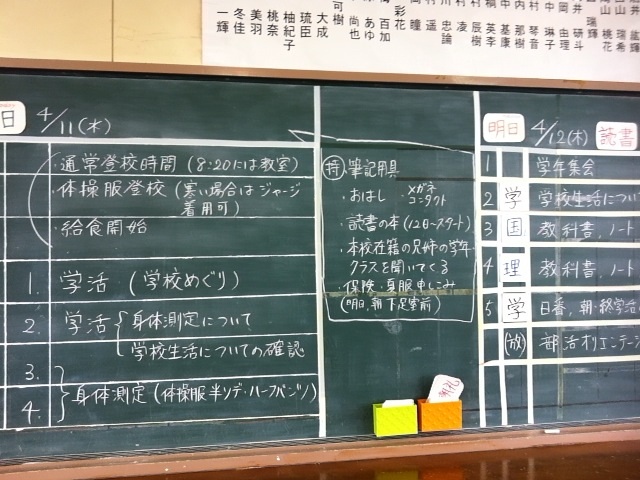 一輝
冬佳
美羽
桃奈
柚紀子
琉臣
大成
日 4/11(木)
・通常登校時間(8:20には教室)
・体操服登校(寒い場合はジャージ
着用可)
・給食開始
1. 学活 (学校めぐり)
2. 学活 { 身体測定について
学校生活についての確認
3.
4. } 身体測定(体操服半ソデ・ハーフパンツ)
持 ・筆記用具
・おはし ・メガネ
コンタクト
・読書の本(12日〜スタート)
・本校在籍の兄姉の学年
クラスを聞いてくる
・保険・夏服申しこみ
(明日、朝下足室前)
明日 4/12(木) 読書
1 学年集会
2 学 学校生活につい
3 国 教科書、ノート
4 理 教科書、ノート
5 学 日番、朝・終学活
(放) 部活オリエンテーシ